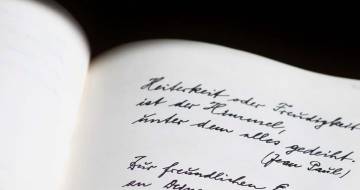 Heiterkeit oder Freudigkeit
ist der Himmel,
unter dem alles gedeiht.
(Jean Paul)
Zur freundlichen E
an